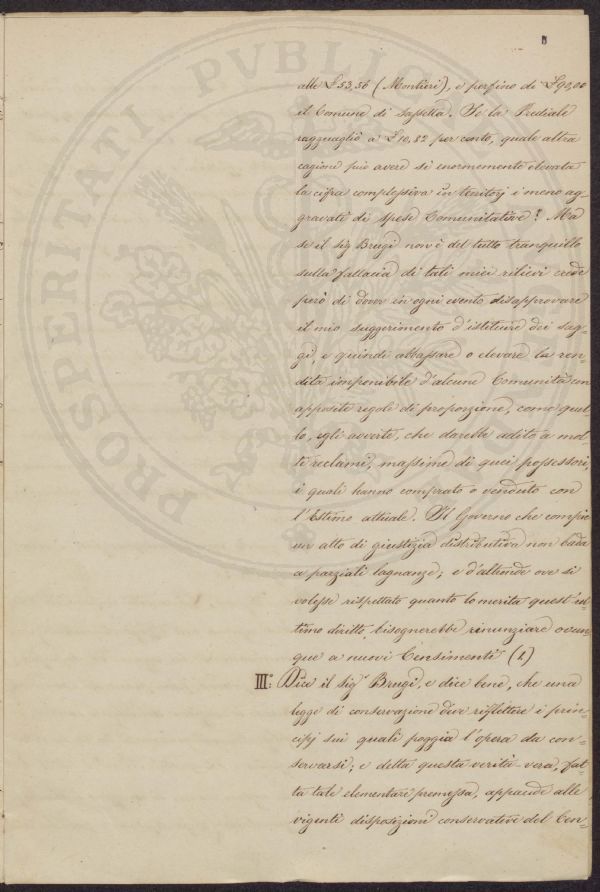 alle £ 53,56 (Montieri), e perfino di £ 90,00
il Comune di Sassetta. Se la Prediale
ragguagliò a £ 10,82 per cento, quale altra
cagione può avere sì enormemente elevata
la cifra complessiva in territorj i meno ag=
gravati di spese Comunitative! Ma
se il sig Brugi non è del tutto tranquillo
sulla fallacia di tali miei rilievi crede
però di dover in ogni evento disapprovare
il mio suggerimento d'istituire dei sag=
gi, e quindi abbassare o elevare la ren=
dita imponibile d'alcune Comunità con
apposite regole di proporzione, come quel
lo, egli avverte, che darebbe adito a mol
ti reclami, massime di quei possessori,
i quali hanno comprato o venduto con
l'Estimo attuale. Il Governo che compie
un atto di giustizia distributiva non bada
a parziali lagnanze; e d'altronde ove si
volesse rispettato quanto lo merita quest'ul=
timo diritto, bisognerebbe rinunziare ovun=
que a nuovi Censimenti (1)
III°: Dice il Sig Brugi, e dice bene, che una
legge di conservazione deve riflettere i prin=
cipj sui quali poggia l'opera da con=
servarsi; e detta questa verità vera, fat=
ta tale elementare premessa, appende alle
vigenti disposizioni conservative del Cen=
PROSPERITATI PVBLICAE